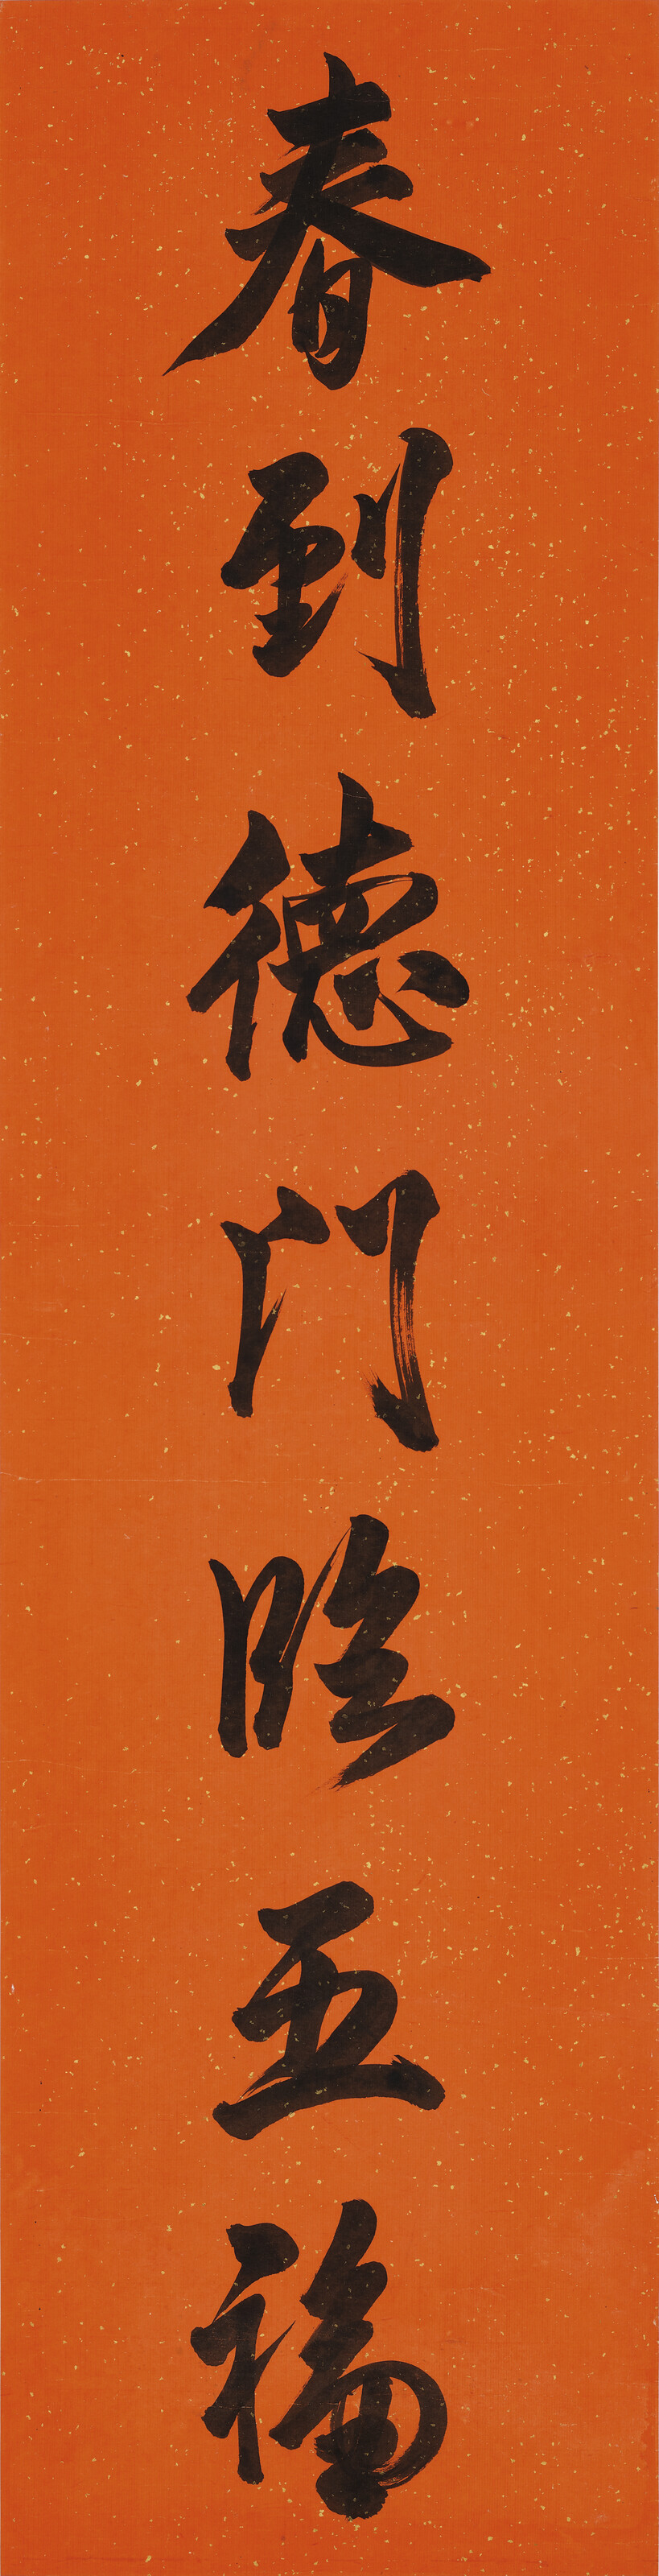 春到德門臨五福